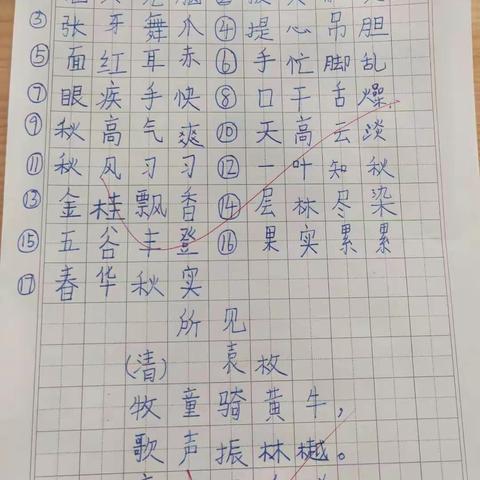 ③张牙舞爪④提心吊胆
⑤面红耳赤⑥手忙脚乱
⑦眼疾手快⑧口干舌燥
⑨秋高气爽⑩天高云淡
⑪秋风习习⑫一叶知秋
⑬金桂飘香⑭层林尽染
⑮五谷丰登⑯果实累累
⑰春华秋实
所见
(清) 袁枚
牧童骑黄牛,
歌声振林樾。